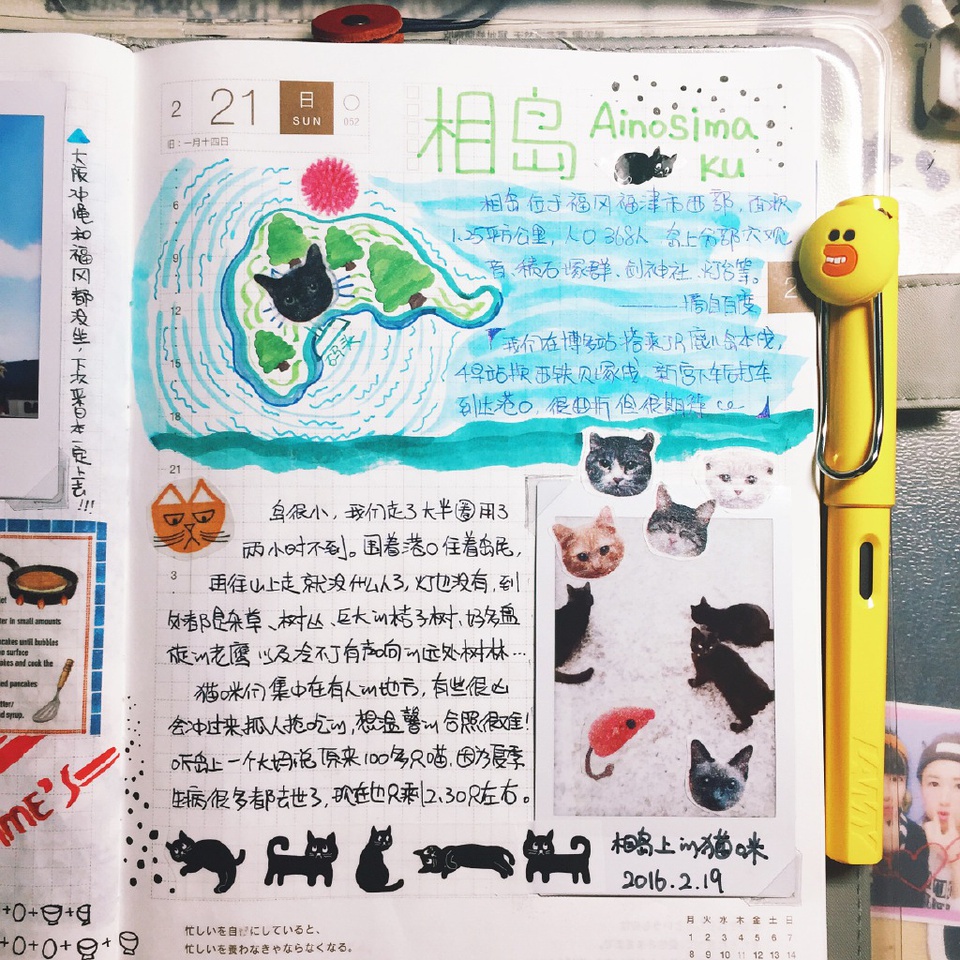 2 21 日
SUN
052
旧：一月十四日
相岛 Ainosima
ku
大阪冲绳和福冈都没坐，下次来日本一定上去!!!
6
9
12
15
18
21
3
码头
相岛位于福冈福津市西部，面积
1.25平方公里，人口368人 岛上分部穴观
音、积石塚群、剑神社、灯台等。
——摘自百度
我们在博多站搭乘JR鹿儿岛本线，
下车后打车
到达港口，很曲折但很期待
岛很小，我们走了大半圈用了
两小时不到。围着港口住着岛民，
再往山上走就没什么人了，灯也没有，到
处都是杂草、树丛、巨大的桔子树、好多盘
旋的老鹰以及冷不丁有声响的远处树林…
猫咪们集中在有人的地方，有些很凶
会冲过来抓人抢吃的，想温馨的合照很难！
听岛上一个大妈说原来100多只喵，因为夏季
生病很多都去世了，现在也只剩2、30只左右。
相岛上的猫咪
2016.2.19
忙しいを自にしていると、
忙しいを養わなきゃならなくなる。
月 火 水 木 金 土 日
1 2 3 4 5 6 7
8 9 10 11 12 13 14
ter in small amounts
cakes until bubbles
e surface
akes and cook the
ed pancakes
tter/
d syrup.
ME'S
LAMY